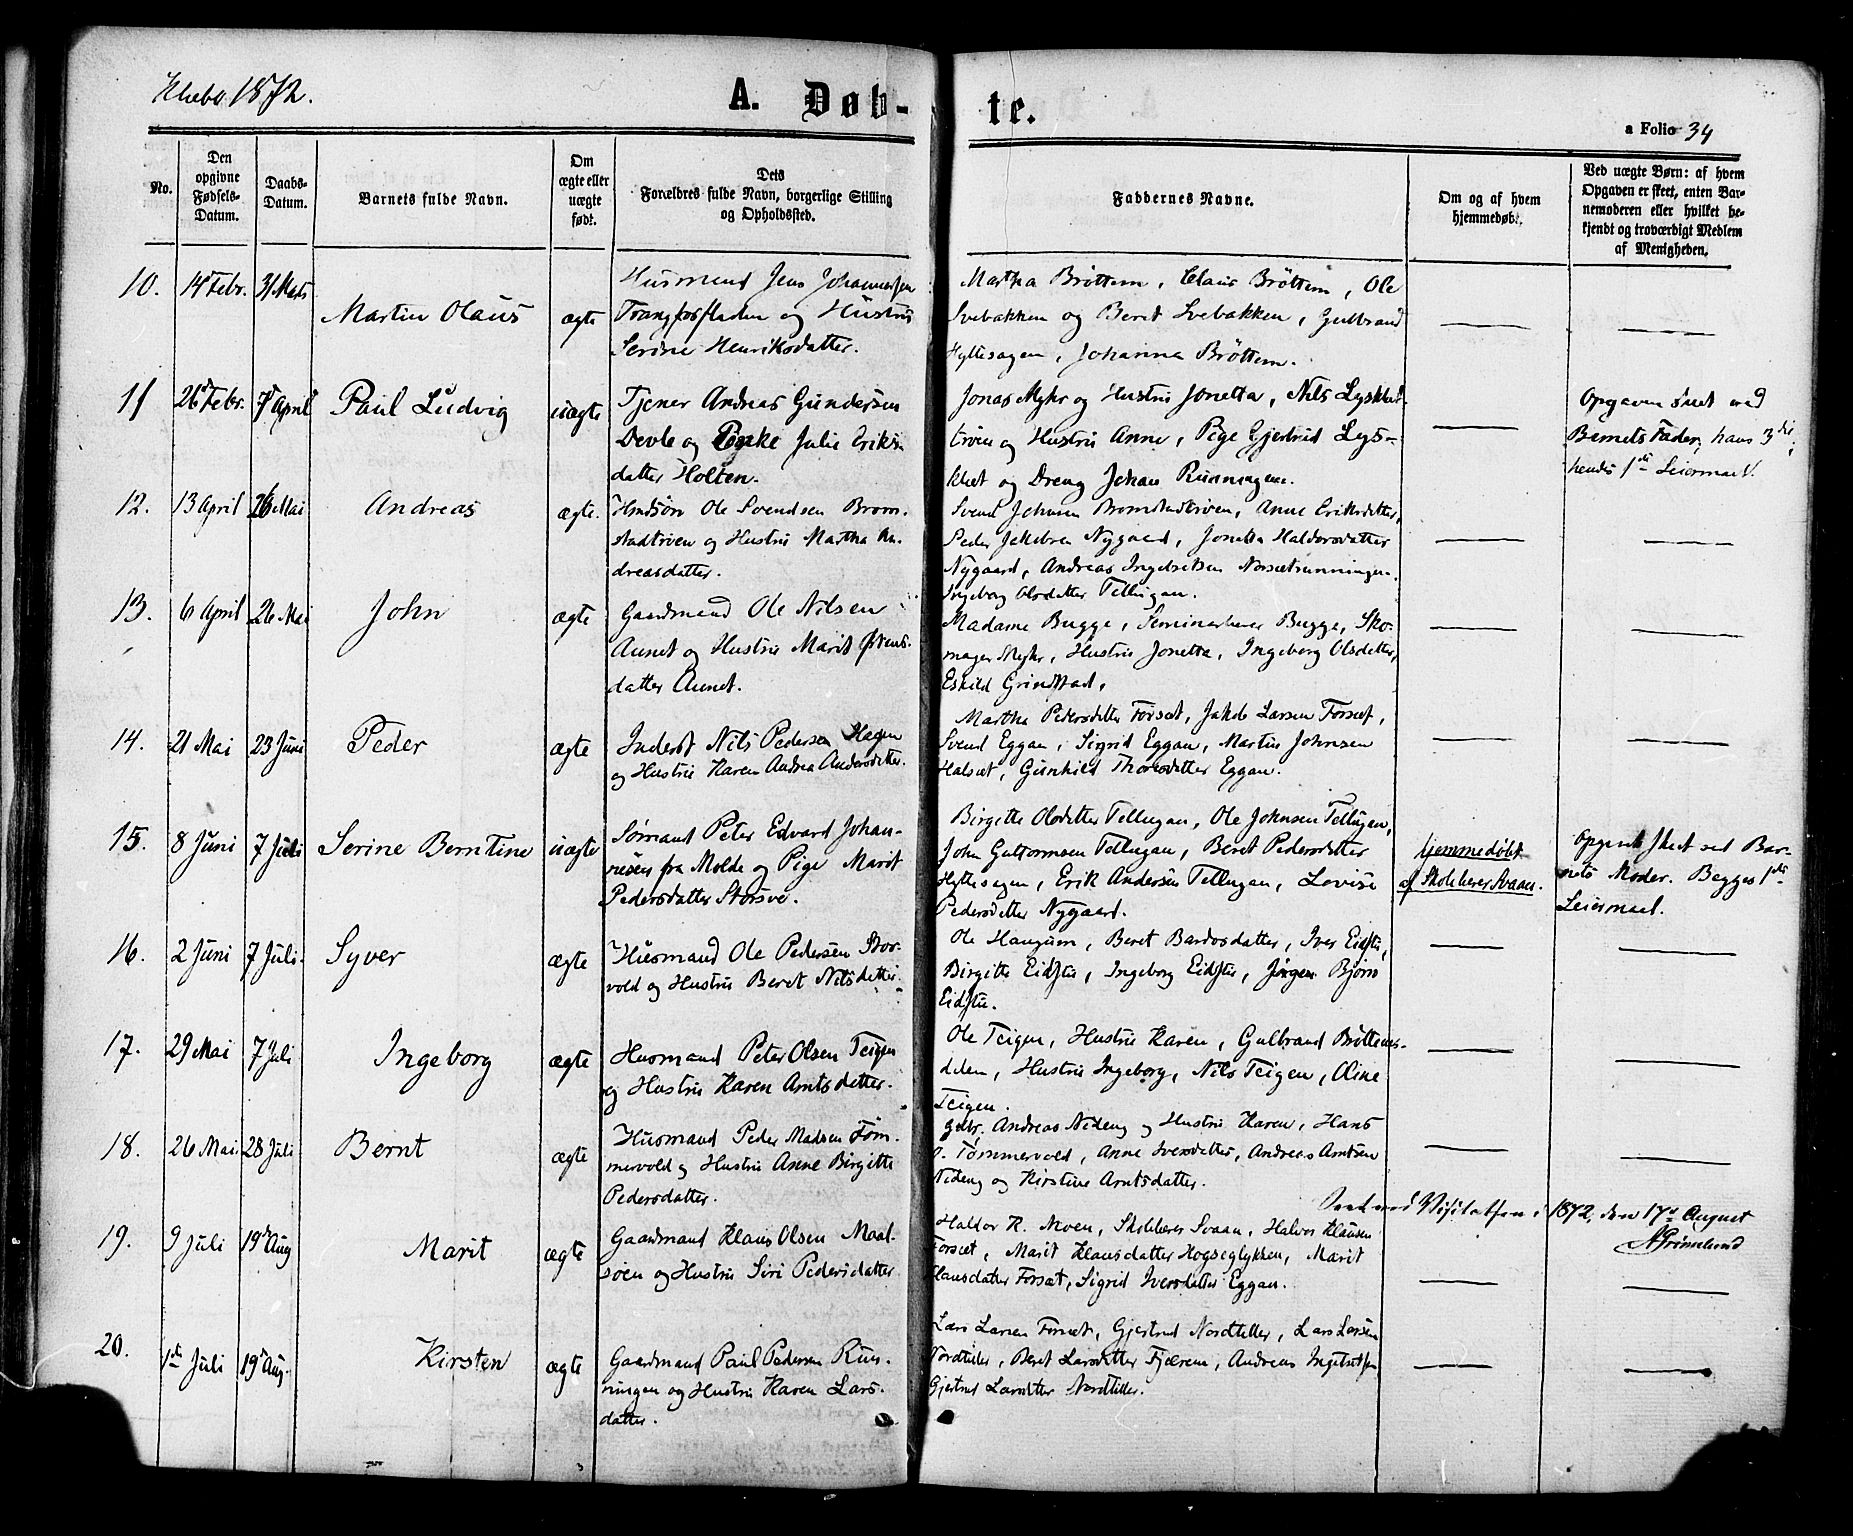 Klæbo 1872.
A. Døb-
te.
a Folio 34
No.
Den opgivne Fødsels-Datum.
Daabs-Datum.
Barnets fulde Navn.
Om ægte eller uægte født.
Dets Forældres fulde Navn, borgerlige Stilling og Opholdssted.
Faddernes Navne.
Om og af hvem hjemmedøbt.
Ved uægte Børn: af hvem Opgaven er skeet, enten Barnemoderen eller hvilket bekjendt og troværdigt Medlem af Menigheden.
10. 14 Febr. 31 Marts Martin Olaus ægte
Husmand Jens Johannessen
Trangfosfladen og Hustru
Serine Henriksdatter.
Martha Brøttem, Claus Brøttem, Ole
Svebakken og Beret Svebakken, Gulbrand
Hyttesagen, Johanna Brøttem.
11 26 Febr. 7 April Paul Ludvig uægte
Tjener Andreas Gundersen
Devle og Julie Eriks-
datter Holten.
Jonas Myhr og Hustru Jonetta, Nils Lysklæt-
trøen og Hustru Anne, Pige Gjertrud Lys-
klæt og Dreng Johan Runningen.
Opgaven skeet ved
Barnets Fader, hans 3die,
hendes 1ste Leiermaal.
12. 13 April 26 Mai Andreas ægte.
Ole Svendsen Brom-
stadtrøen og Hustru Martha An-
dreasdatter.
Svend Johnsen Bromstadtrøen, Anne Eriksdatter,
Peder Jakobsen Nygaard, Jonetta Haldorsdatter
Nygaard, Andreas Ingebretsen
Ingeborg Olsdatter Tellugan.
13. 6 April 26 Mai John ægte
Gaardmand Ole Nilsen
Aunet og Hustru Marit Østens-
datter Aunet.
Madame Bugge, Seminarlærer Bugge, Sko-
mager Myhr, Hustru Jonetta, Ingeborg Olsdatter,
Eskild Grindstad.
14. 21 Mai 23 Juni Peder ægte
Inderst Nils Pedersen Hagen
og Hustru Karen Andrea Andersdatter.
Martha Pedersdatter Forsæt, Jakob Larsen Forsæt,
Svend Eggan, Sigrid Eggan, Martin Johnsen
Halsæt, Gunhild Thoresdatter Eggan.
15. 8 Juni 7 Juli Serine Berntine uægte
Sømand Peter Edvard Johan-
nesen fra Molde og Pige Marit
Pedersdatter Storsve.
Birgitte Olsdatter Tellugan, Ole Johnsen Tellugan,
John Guttormsen Tellugan, Beret Pedersdatter
Hyttesagen, Erik Andersen Tellugan, Lovise
Pedersdatter Nygaard.
hjemmedøbt
af Skolelærer Svaan.
Opgivelse skeet ved Bar-
nets Moder. Begges 1ste
Leiermaal.
16. 2 Juni 7 Juli. Syver ægte
Husmand Ole Pedersen Stor-
vold og Hustru Beret Nilsdatter.
Ole Haugum, Beret Bardosdatter, Iver Eidstu,
Birgitte Eidstu, Ingeborg Eidstu, Jørgen Bjørn
Eidstu.
17. 29 Mai 7 Juli Ingeborg ægte
Husmand Peter Olsen Teigen
og Hustru Karen Arntsdatter.
Ole Teigen, Hustru Karen, Gulbrand Brøttems-
delen, Hustru Ingeborg, Nils Teigen, Oline
Teigen.
18. 26 Mai 28 Juli Bernt ægte
Husmand Peder Madsen Tøm-
mervold og Hustru Anne Birgitte
Pedersdatter.
Gdbr. Andreas Nideng og Hustru Karen, Hans
Tømmervold, Anne Iversdatter, Andreas Arntsen
Nideng og Kirstine Arntsdatter.
Seet ved Visitatsen i 1872, den 17de August
AGrimelund
19. 9 Juli 19de Aug Marit ægte
Gaardmand Klaus Olsen Maal-
søen og Hustru Siri Pedersdatter
Haldor K. Moen, Skolelærer Svaan, Halvor Klausen
Forsæt, Marit Klausdatter Hogseglykken, Marit
Hansdatter Forsæt, Sigrid Iversdatter Eggan.
20. 1ste Juli 19de Aug. Kirsten ægte
Gaardmand Paul Pedersen Run-
ningen og Hustru Karen Lars-
datter.
Lars Larsen Forsæt, Gjertrud Nordtiller, Lars Larsen
Nordtiller, Beret Larsdatter Fjæren, Andreas Ingebretsen
Gjertrud Larsdatter Nordtiller.